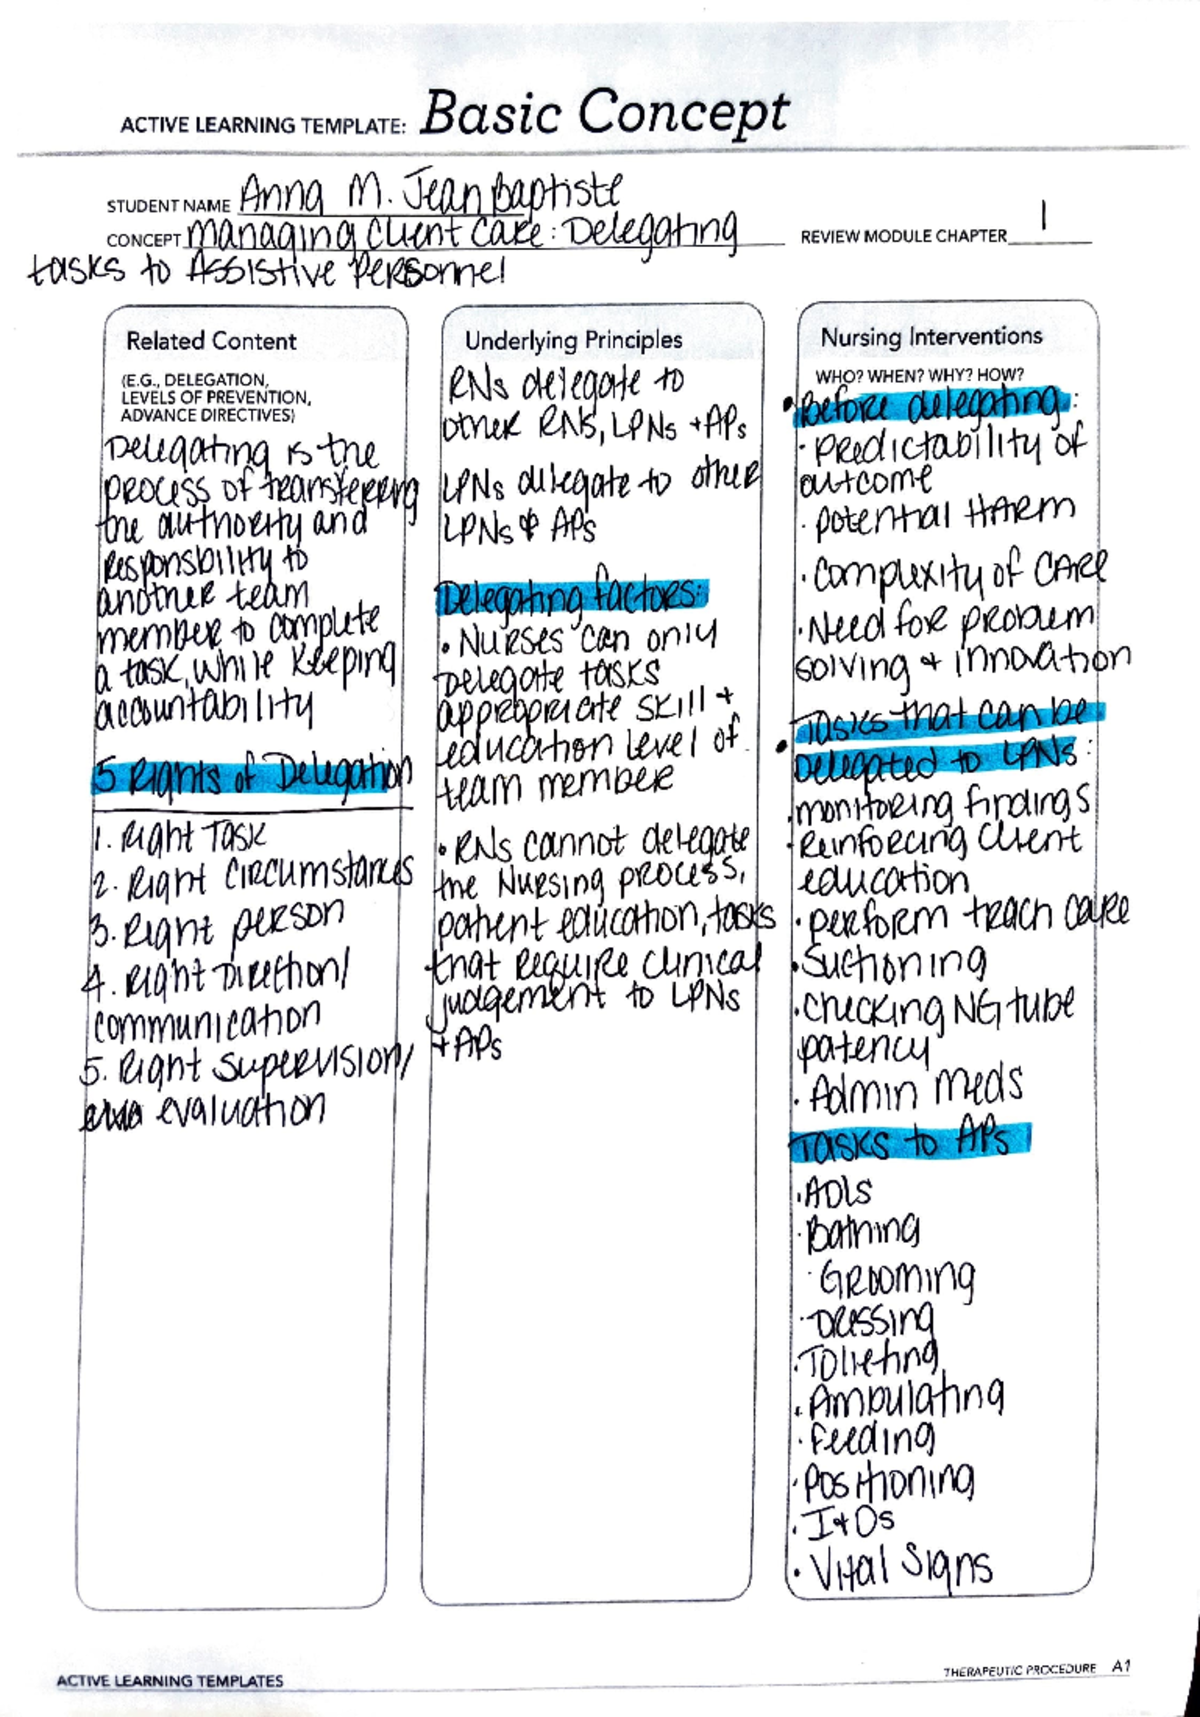 ACTIVE LEARNING TEMPLATE: Basic Concept
STUDENT NAME Anna M. Jean Baptiste
CONCEPT Managing Client Care: Delegating
REVIEW MODULE CHAPTER 1
tasks to Assistive Personnel
Related Content
(E.G., DELEGATION,
LEVELS OF PREVENTION,
ADVANCE DIRECTIVES)
Delegating is the
process of transferring
the authority and
responsbility to
another team
member to complete
a task, while keeping
accountability
5 Rights of Delegation
1. Right Task
2. Right Circumstances
3. Right person
4. Right Direction/
communication
5. Right Supervision/
evaluation
Underlying Principles
RNs delegate to
other RNs, LPNs + APs
LPNs delegate to other
LPNs & APs
Delegating factors:
• Nurses can only
Delegate tasks
appropriate skill +
education level of
team member
• RNs cannot delegate
the Nursing process,
patient education, tasks
that require clinical
judgement to LPNs
+ APs
Nursing Interventions
WHO? WHEN? WHY? HOW?
• Before delegating:
· Predictability of
outcome
· potential HARM
· Complexity of CARE
· Need for problem
solving + innovation
• Tasks that can be
Delegated to LPNs:
· monitoring findings
· Reinforcing Client
education
· perform trach care
· Suctioning
· checking NG tube
patency
· Admin meds
Tasks to APs
· ADLs
· Bathing
· Grooming
· Dressing
· Tolieting
· Ambulating
· Feeding
· Positioning
· I+Os
· Vital Signs
ACTIVE LEARNING TEMPLATES
THERAPEUTIC PROCEDURE A1